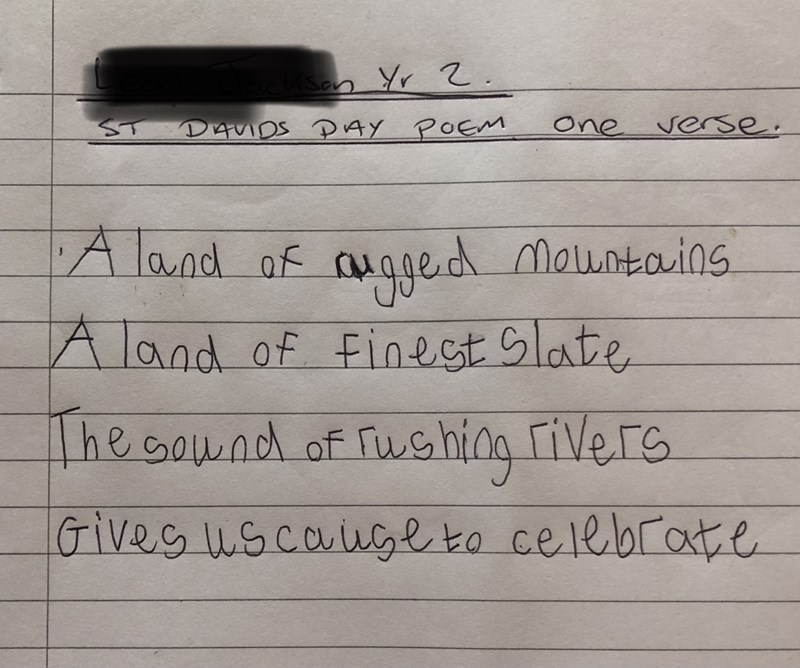 Yr 2.
ST DAVIDS DAY POEM one verse.
A land of rugged Mountains
A land of finest Slate
The sound of rushing rivers
Gives us cause to celebrate